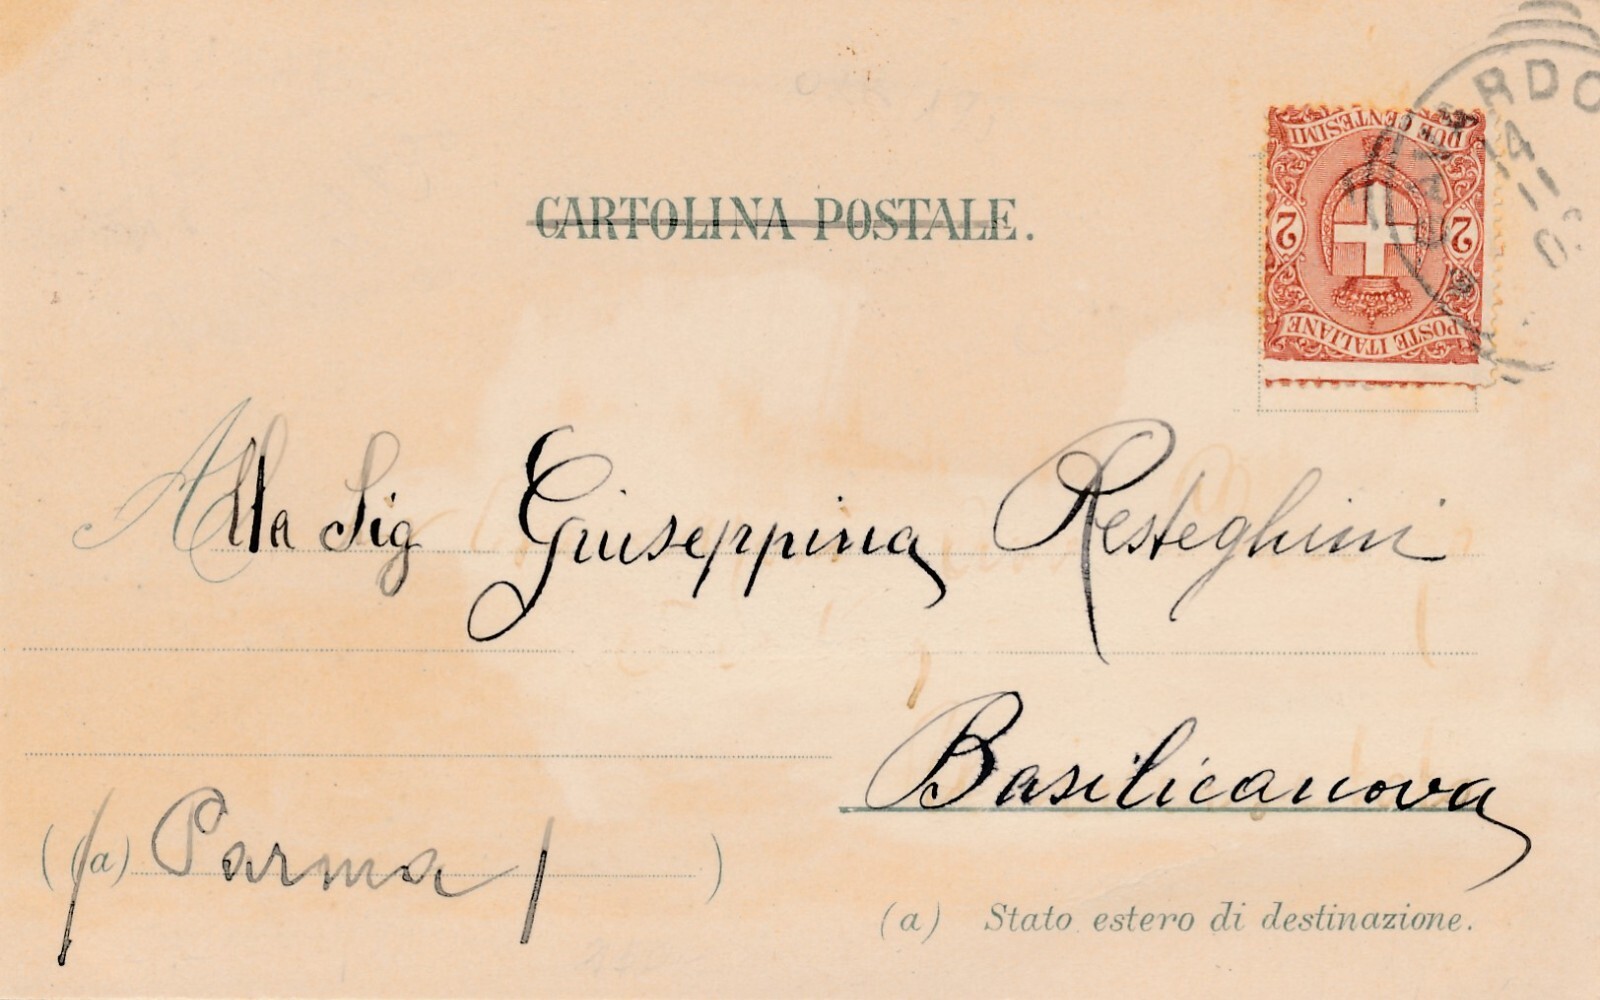 CARTOLINA POSTALE.
DUE CENTESIMI
2 2
POSTE ITALIANE
14
11
Alla Sig Giuseppina Resteghini
Basilicanova
(a) Parma
(a) Stato estero di destinazione.